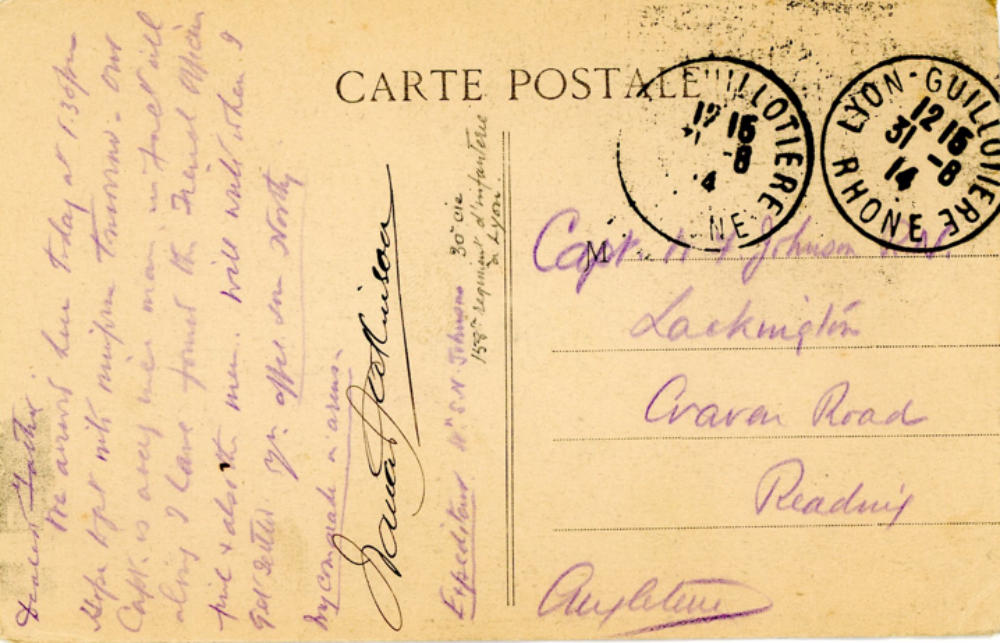 CARTE POSTALE
GUILLOTIERE
12 15
-8
4
NE
LYON-GUILLOTIERE
12 15
31 -8
14
RHONE
M
Capt Johnson R.N.
Lackington
Craven Road
Reading
Angleterre
Dearest Father
We arrived here today at 1.30 pm
Hope to get into uniform tomorrow. Our
Capt. is a very nice man in fact will
along I have found the French Officers
fine & also the men. Will write when I
get settled yr. affec. son Northy
My comrade in arms.
Expediteur Mr S N Johnson 30e Cie
158e regiment d'infanterie
à Lyon.